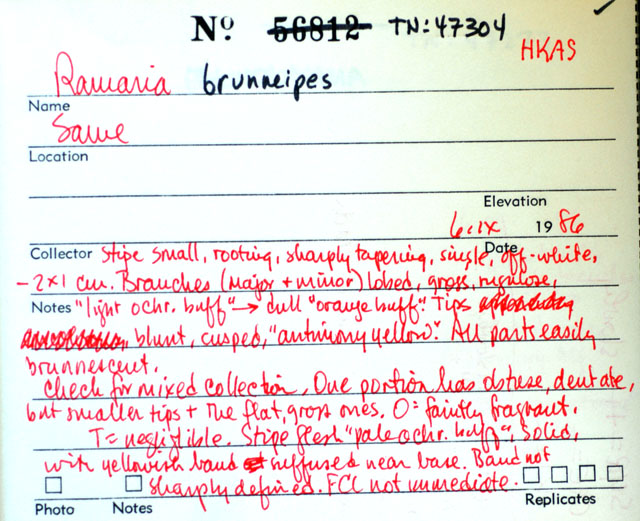 Nº 56812 TN: 47304
HKAS
Ramaria brunneipes
Name
Same
Location
Elevation
6.IX 1986
Date
Collector stipe small, rooting, sharply tapering, single, off-white,
~2x1 cm. Branches (major + minor) lobed, gross, rugulose,
Notes "light ochr. buff" → dull "orange buff". Tips
blunt, cusped, "antimony yellow". All parts easily
brunnescent.
Check for mixed collection. One portion has obtuse, dentate,
but smaller tips + the flat, gross ones. O = faintly fragrant.
T = negligible. Stipe flesh "pale ochr. buff", solid,
with yellowish band suffused near base. Band not
sharply defined. FCL not immediate.
Photo Notes Replicates